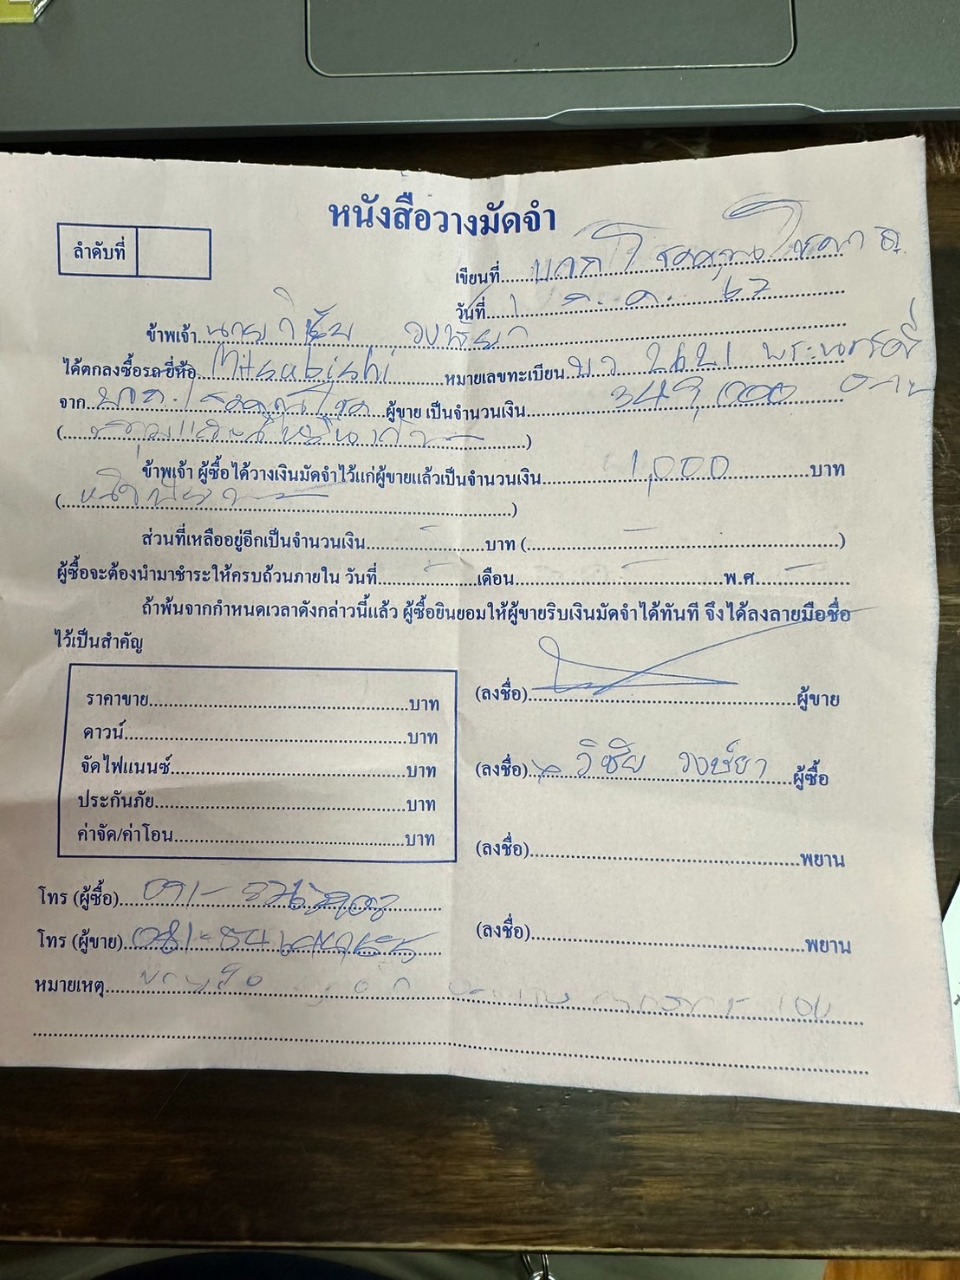 หนังสือวางมัดจำ
ลำดับที่
เขียนที่
วันที่ 1 ต.ค. 67
ข้าพเจ้า นาย วิชัย
ได้ตกลงซื้อรถ ยี่ห้อ Mitsubishi หมายเลขทะเบียน 2621
จาก ผู้ขาย เป็นจำนวนเงิน 349,000
(สามแสนสี่หมื่นเก้า)
ข้าพเจ้า ผู้ซื้อได้วางเงินมัดจำไว้แก่ผู้ขายแล้วเป็นจำนวนเงิน 1,000 บาท
(หนึ่งพัน)
ส่วนที่เหลืออยู่อีกเป็นจำนวนเงิน - บาท (- )
ผู้ซื้อจะต้องนำมาชำระให้ครบถ้วนภายใน วันที่ - เดือน - พ.ศ. -
ถ้าพ้นจากกำหนดเวลาดังกล่าวนี้แล้ว ผู้ซื้อยินยอมให้ผู้ขายริบเงินมัดจำได้ทันที จึงได้ลงลายมือชื่อ
ไว้เป็นสำคัญ
ราคาขาย บาท
ดาวน์ บาท
จัดไฟแนนซ์ บาท
ประกันภัย บาท
ค่าจัด/ค่าโอน บาท
(ลงชื่อ) ผู้ขาย
(ลงชื่อ) วิชัย วงษ์ยา ผู้ซื้อ
(ลงชื่อ) พยาน
(ลงชื่อ) พยาน
โทร (ผู้ซื้อ) 091-
โทร (ผู้ขาย) 081-
หมายเหตุ